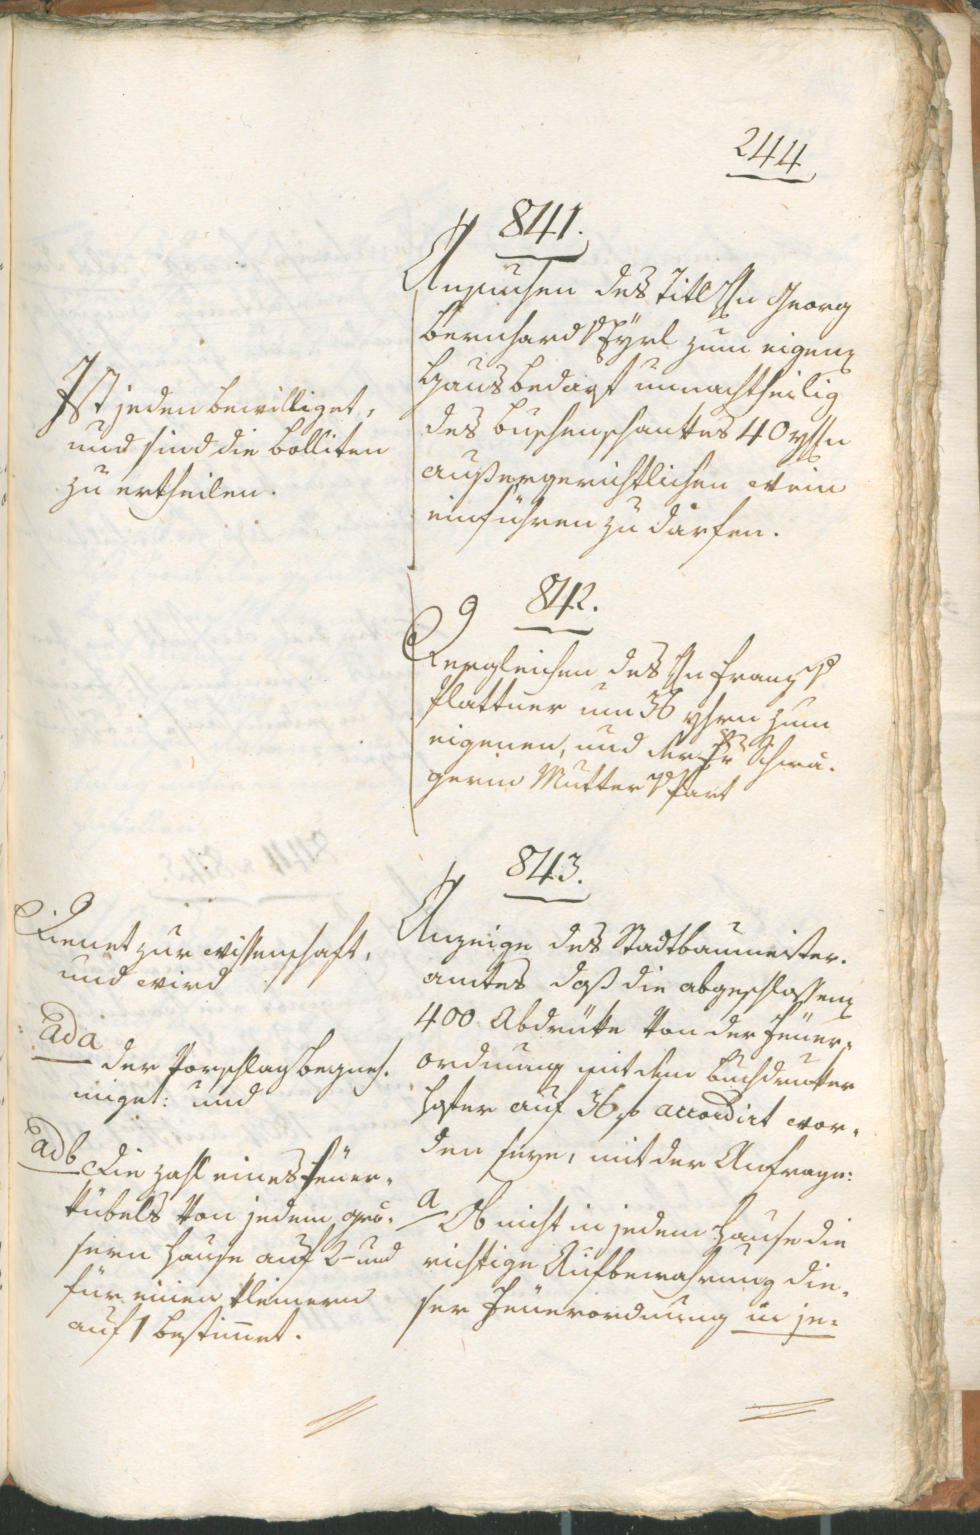 244
841.
Ansuchen des Titl Hn Georg
Bernhard Eyrl zum eigen
Hausbedarf unnachtheilig
des Buschenschankes 40 yhn
außergerichtlichen Wein
einführen zu därfen.
Ist jeden bewilliget,
und sind die Bolliten
zu ertheilen.
842.
Dergleichen des Hn Franz
Plattner um 36 yhrn zum
eigenen, und der Schwä-
gerin Mutter Part
843.
Anzeige des Stadtbaumeister-
amtes daß die abgeschlossene
400 Abdrüke von der Feuer-
ordnung mit dem Buchdruker
auf 36 f accordirt wor-
den seye, mit der Anfrage:
a Ob nicht in jedem Hause die
richtige Aufbewahrung die-
ser Feuerordnung in je-
Dienet zur Wissenschaft,
und wird
ad a
der Vorschlag begneh-
miget: und
ad b Die Zahl eines Feuer-
kübels von jedem grö-
sern Hause auf 2- und
für einen kleinern
auf 1 bestimmet.